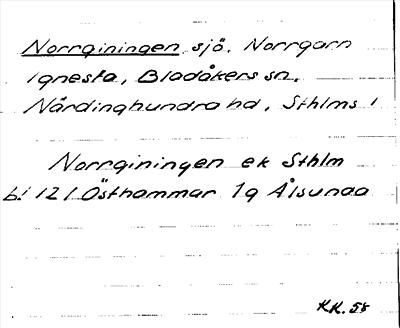 Norrginingen, sjö. Norrgarn
Ignesta, Bladåkers sn,
Närdinghundra hd, Sthlms l
Norrginingen ek Sthlm
bl 121 Östhammar 1g Ålsunda
KK. 58